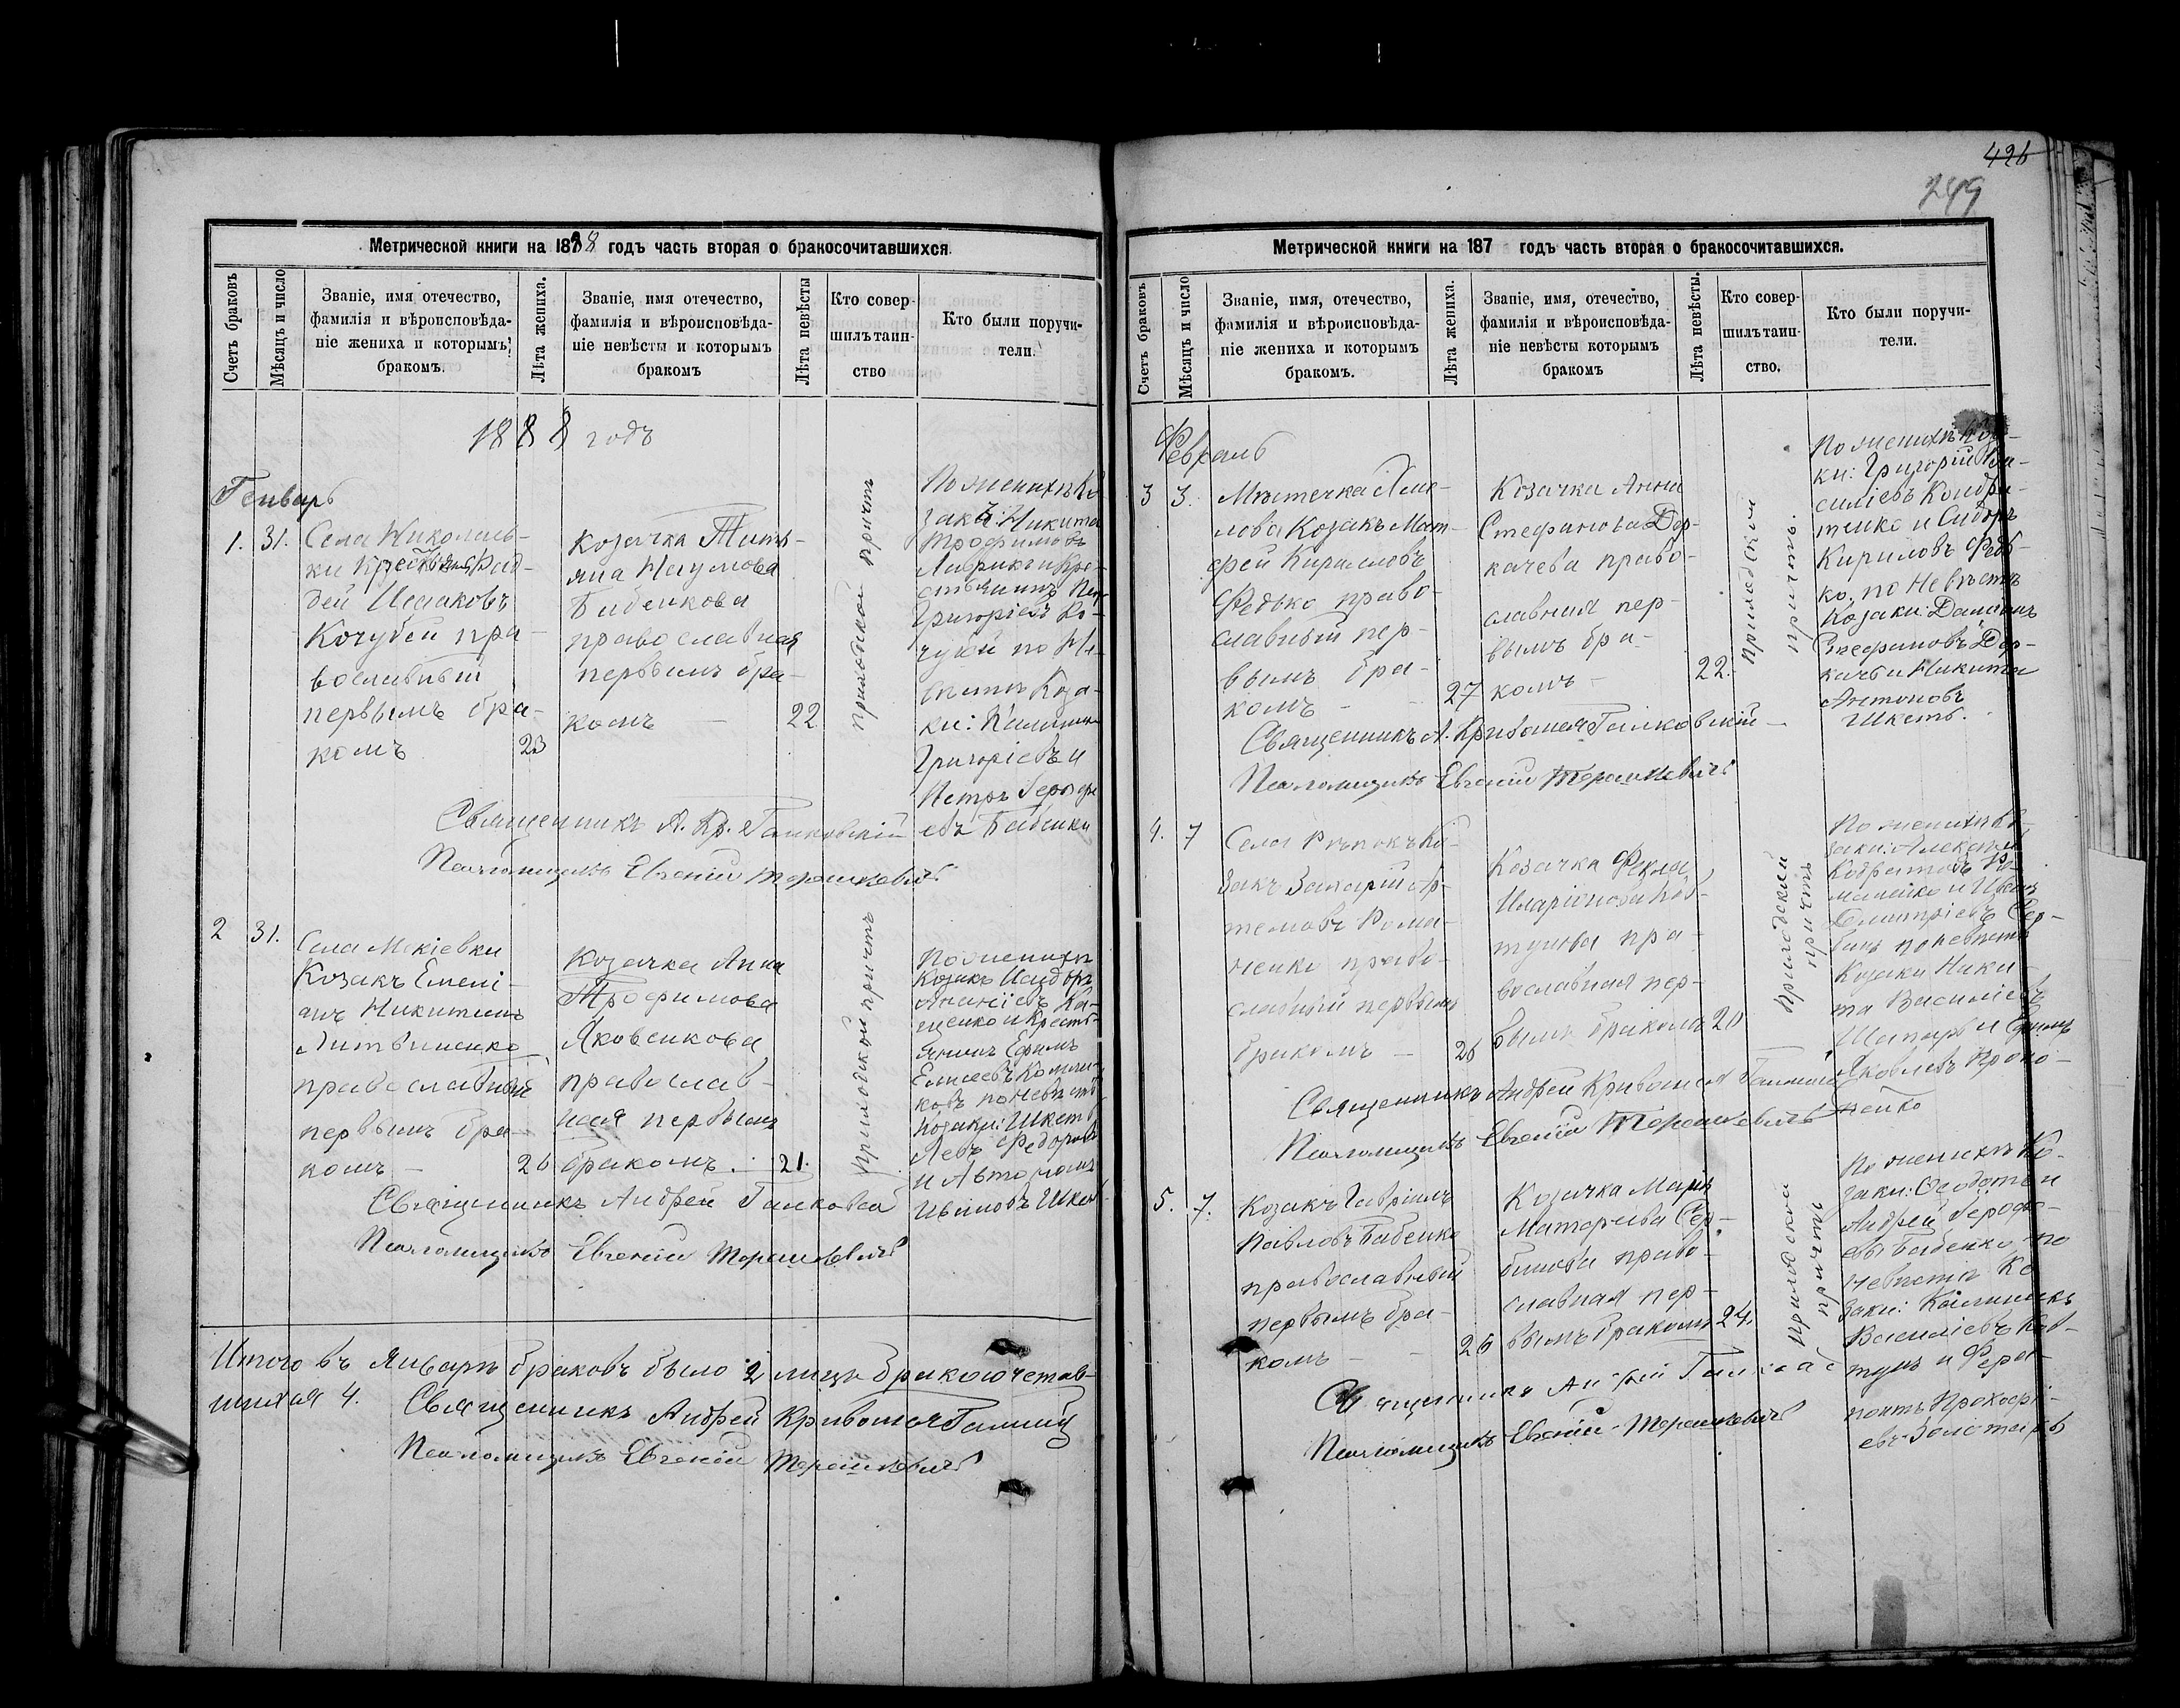 Метрической книги на 1888 годъ часть вторая о бракосочитавшихся.
Счетъ браковъ
Мѣсяцъ и число
Званіе, имя отечество,
фамилія и вѣроисповѣда-
ніе жениха и которымъ
бракомъ.
Лѣта жениха.
Званіе, имя отечество,
фамилія и вѣроисповѣда-
ніе невѣсты и которымъ
бракомъ
Лѣта невѣсты
Кто совер-
шилъ таин-
ство
Кто были поручи-
тели.
1888 годъ
Генварь
1. 31.
Села Николаев-
ки
дей Исааковъ
Кочубей пра-
вославный
первымъ бра-
комъ
23
Козачка Татья-
яна Наумова
Бабенкова
православная
первымъ бра-
комъ
22
Приходской причтъ
По женихѣ Ко
заки: Никита
Трофимовъ
Григоріевъ Ко-
чубей по Не-
вѣстѣ Коза-
ки:
Григоріевъ и
Петръ Герофе
евъ Бабенки
Священникъ А. Кр. Галковскій
Псаломщикъ Евгеній Терешкевичъ
2 31.
Села Мокіевки
Козакъ Емелі-
анъ Никитинъ
Литвиненко
православный
первымъ бра-
комъ
26
Козачка Анна
Трофимова
Яковенкова
православ-
ная первымъ
бракомъ.
21.
Приходской причтъ
По женихѣ
Козакъ Исидоръ
Ананіевъ Ка-
щенко и Кресть-
янинъ Ефимъ
Елисеевъ
ковъ по Невѣстѣ
Козаки: Шкетъ
Левъ Федоровъ
и Автономъ
Ивановъ Шкетъ
Священникъ Андрей
Псаломщикъ Евгеній Терешкевичъ
Итого въ Январѣ браковъ было 2 лицъ бракосочетав-
шихся 4.
Священникъ Андрей
Псаломщикъ Евгеній Терешкевичъ
426
249
Метрической книги на 187 годъ часть вторая о бракосочитавшихся.
Счетъ браковъ
Мѣсяцъ и число
Званіе, имя, отечество,
фамилія и вѣроисповѣда-
ніе жениха и которымъ
бракомъ.
Лѣта жениха.
Званіе, имя, отечество,
фамилія и вѣроисповѣда-
ніе невѣсты которымъ
бракомъ
Лѣта невѣсты.
Кто совер-
шилъ таин-
ство.
Кто были поручи-
тели.
Февраль
3 3.
Мѣстечка Сме-
лова Козакъ Мат-
фей Кириловъ
Федько право-
славный пер-
вымъ бра-
комъ
27
Козачка Анна
Стефанова Дор-
качева право-
славная пер-
вымъ бра-
комъ
22.
Приходской
причтъ.
По женихѣ Коза-
ки: Григорій Ва-
силіевъ Кондра-
тенко и Сидоръ
Кириловъ Федь-
ко, по Невѣстѣ
Козаки: Даміанъ
Стефановъ Дор-
качъ и Никита
Антоновъ
Шкетъ.
Священникъ А.
Псаломщикъ Евгеній Терешкевичъ
4. 7
Села Рѣпокъ Ко-
закъ Захарій Ар-
темовъ Рома-
ненко право-
славный первымъ
бракомъ
26
Козачка Фекла
Иларіонова Ков-
тунова пра-
вославная пер-
вымъ бракомъ
20
Приходской
причтъ
По женихѣ Ко-
заки: Алексѣй
и Иванъ
Димитріевъ Сер-
бинъ по невѣстѣ
Козаки Ники-
та Василіевъ
Шапаръ и Ефимъ
Яковлевъ Проко-
пенко
Священникъ Андрей
Псаломщикъ Евгеній Терешкевичъ
5. 7.
Козакъ Гавріилъ
Павловъ Бабенко
православный
первымъ бра-
комъ
26
Козачка Марія
Матфеева Сер-
бинова право-
славная пер-
вымъ бракомъ
24.
Приходской
причтъ
По женихѣ Ко-
заки: Феодотъ и
Андрей Герофе-
евы Бабенко по
Невѣстѣ Ко
заки: Калиникъ
Василіевъ Ков-
тунъ и Фера-
понтъ Прокофі-
евъ Золотарь
Священникъ Андрей
Псаломщикъ Евгеній Терешкевичъ